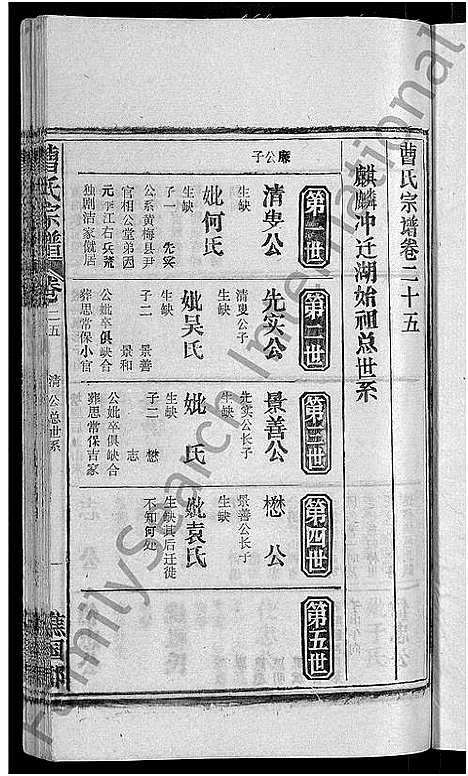 曹氏宗谱卷二十五
麒麟冲迁湖始祖总世系
第一世
廉公子
清叟公
生缺
妣何氏
生缺
子一 先实
公系黄梅县尹
官相公堂弟因
元季江右兵荒
独剧洁家僦居
第二世
先实公
清叟公子
生缺
妣吴氏
生缺
子二 景善
景和
公妣卒俱缺合
葬思常保小官
第三世
景善公
先实公长子
生缺
妣 氏
生缺
子二 懋
志
公妣卒俱缺合
葬思常保吉家
第四世
懋 公
景善公长子
生缺
妣袁氏
生缺其后迁徙
不知何处
第五世
曹氏宗谱
卷二五
清公总世系
一
谯国郡
FamilySearch International